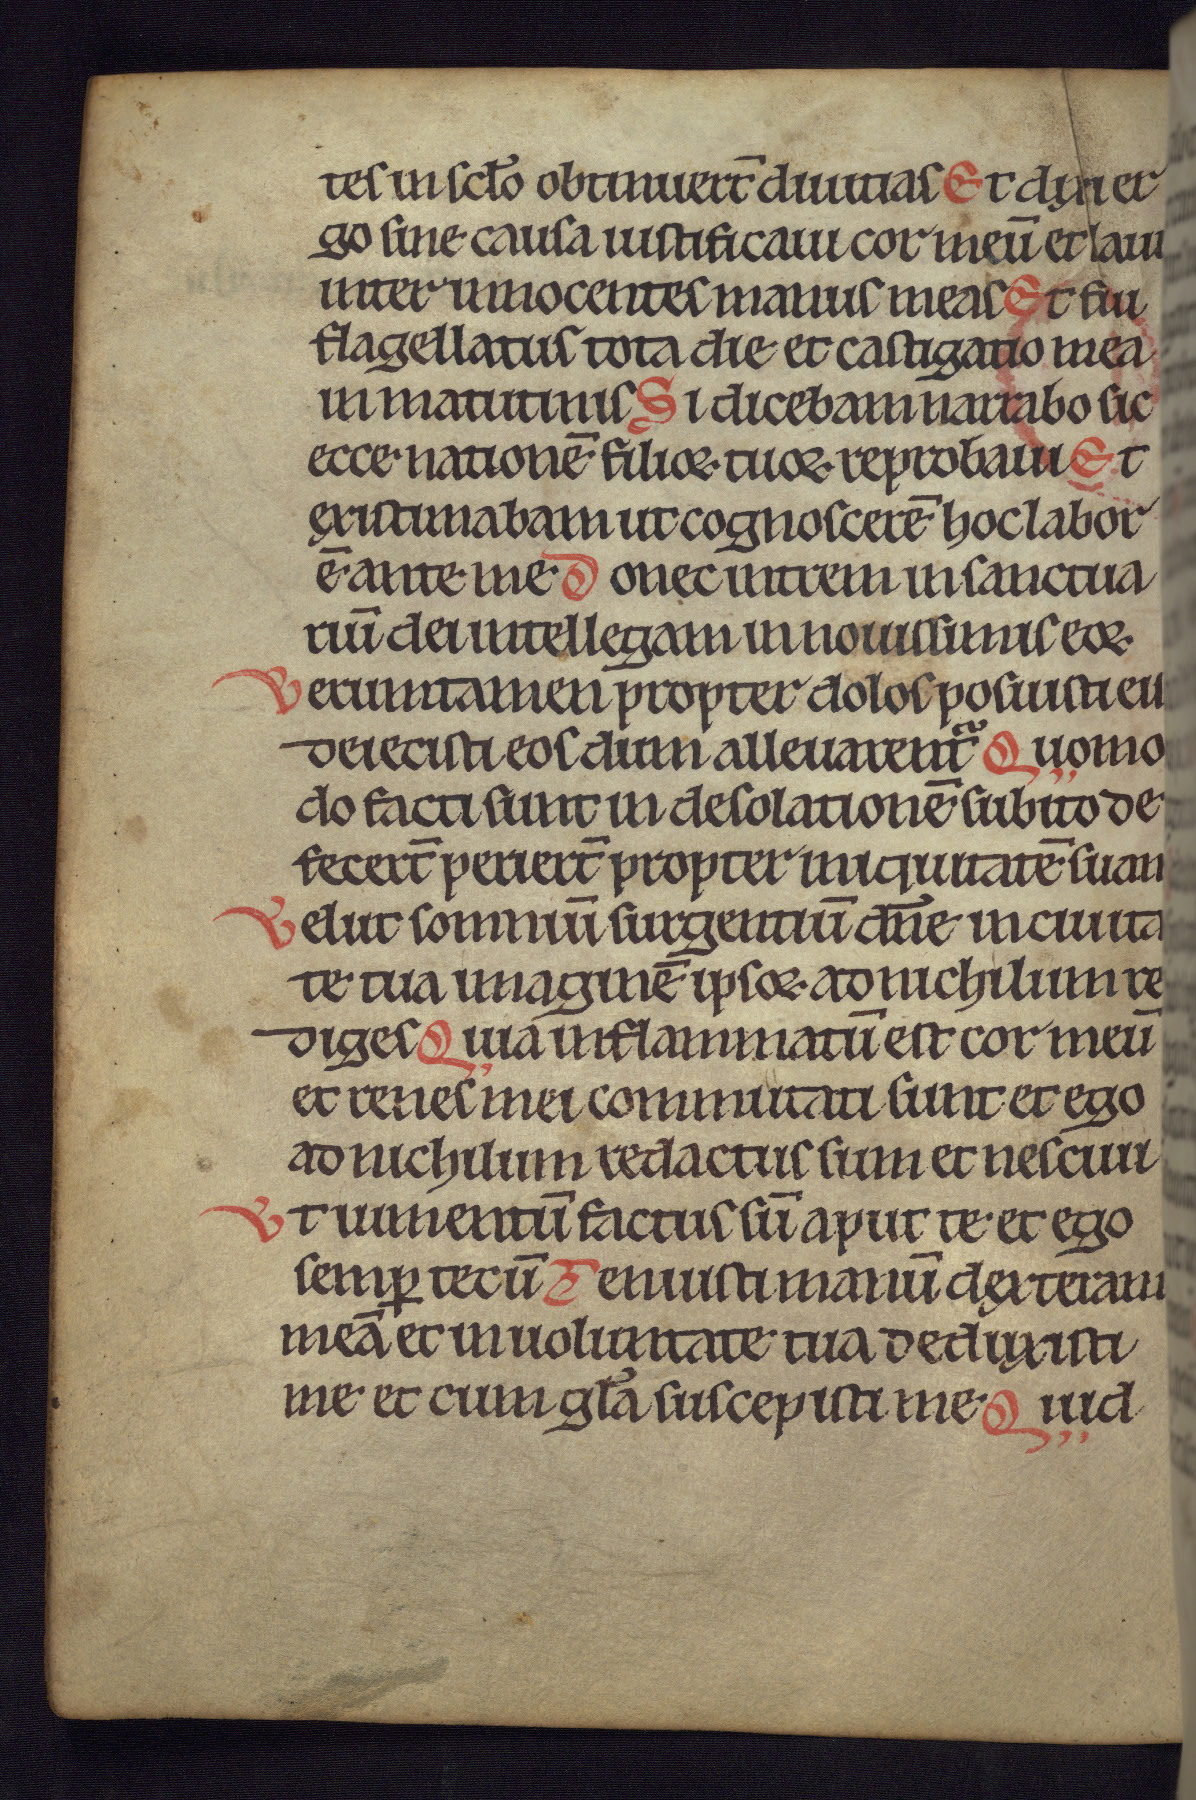 tes in sc̄lo obtinuer̄t diuitias Et dixi er
go sine causa iustificaui cor meū et laui
inter innocentes manus meas Et fui
flagellatus tota die et castigatio mea
in matutinis Si dicebam narrabo sic
ecce nationē filioꝝ tuoꝝ reprobaui Et
existimabam ut cognoscerē hoc labor
ē ante me Donec intrem in sanctua
riū dei intellegam in nouissimis eoꝝ
Veruntamen propter dolos posuisti eis
deiecisti eos dum alleuarent᷑ Quomo
do facti sunt in desolationē subito de
fecer̄t perier̄t propter iniquitatē suam
Velut somniū surgentiū dn̄e in ciuita
te tua imaginē ipsoꝝ ad nichilum re
diges Quia inflammatū est cor meū
et renes mei commutati sunt et ego
ad nichilum redactus sum et nesciui
Vt iumentū factus sū aput te et ego
semꝑ tecū Tenuisti manū dexteram
meā et in uoluntate tua deduxisti
me et cum gl̄a suscepisti me Quid